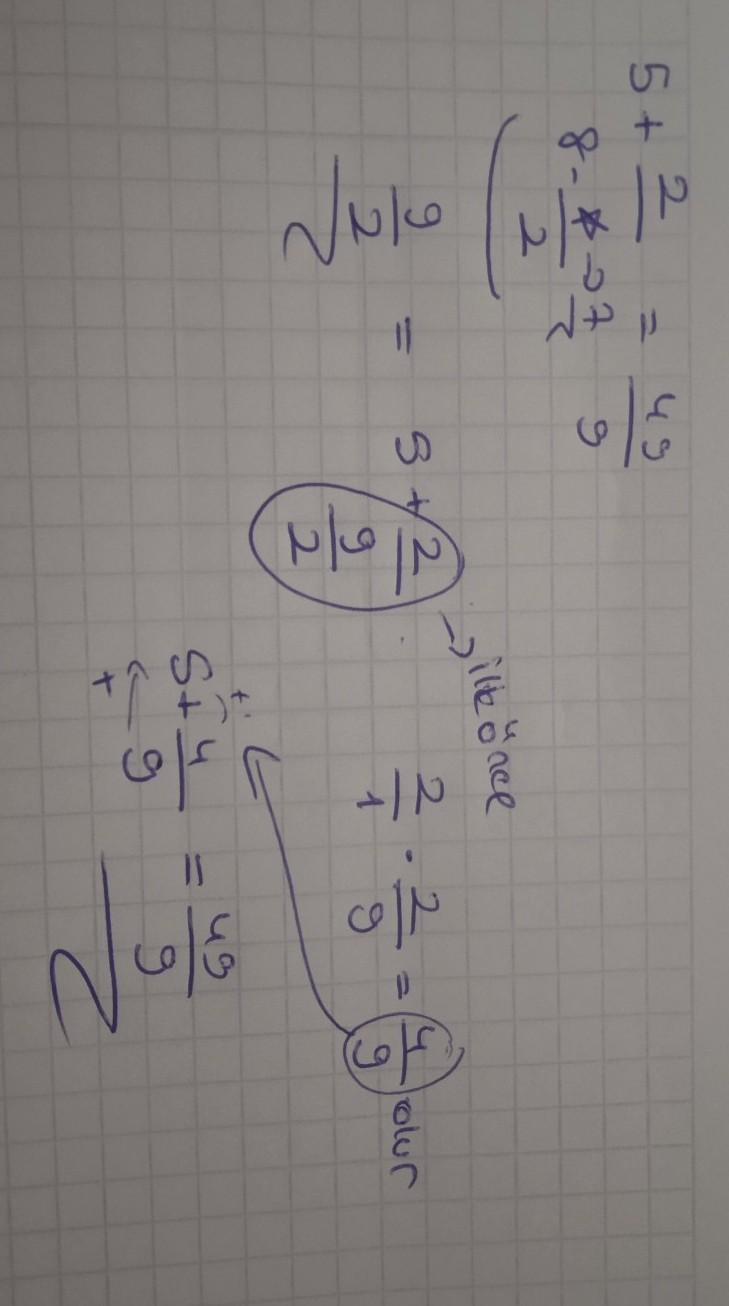 5 + 2 / (8 - x/2 → 7/2) = 49/9
9/2 = 5 + 2 / (9/2) → ilk önce 2/1 · 2/9 = 4/9 olur
5 + 4/9 = 49/9
+ +